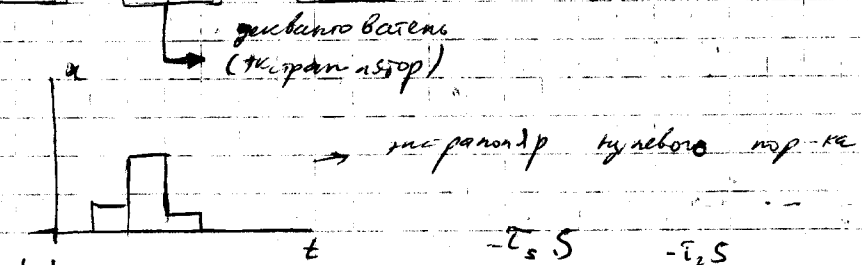 деквантователь
(экстраполятор)
x
→ экстраполяр нулевого пор-ка
t
-τ₅S -τ₂S